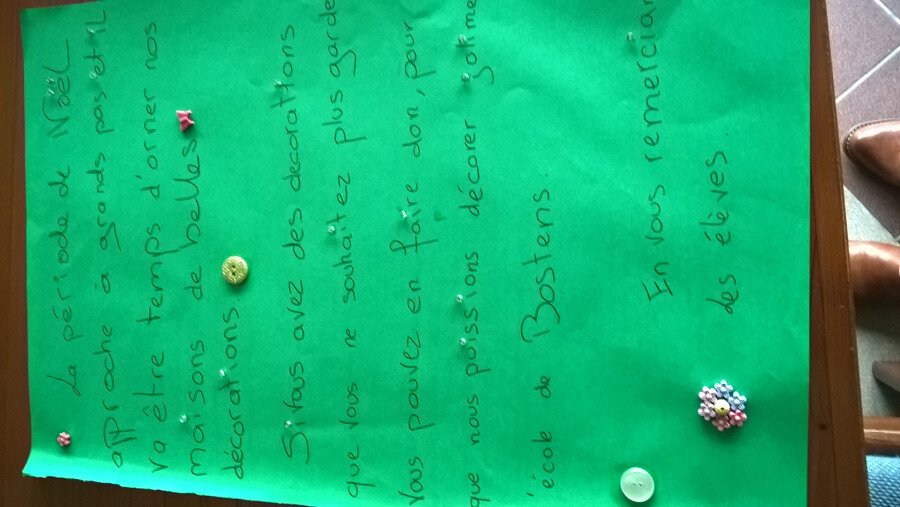 La période de NOËL
approche à grands pas et il
va être temps d'orner nos
maisons de belles
décorations
Si vous avez des decorations
que vous ne souhaitez plus garde
vous pouvez en faire don, pour
que nous puissions décorer
'école de Bostens.
En vous remercian
des élèves